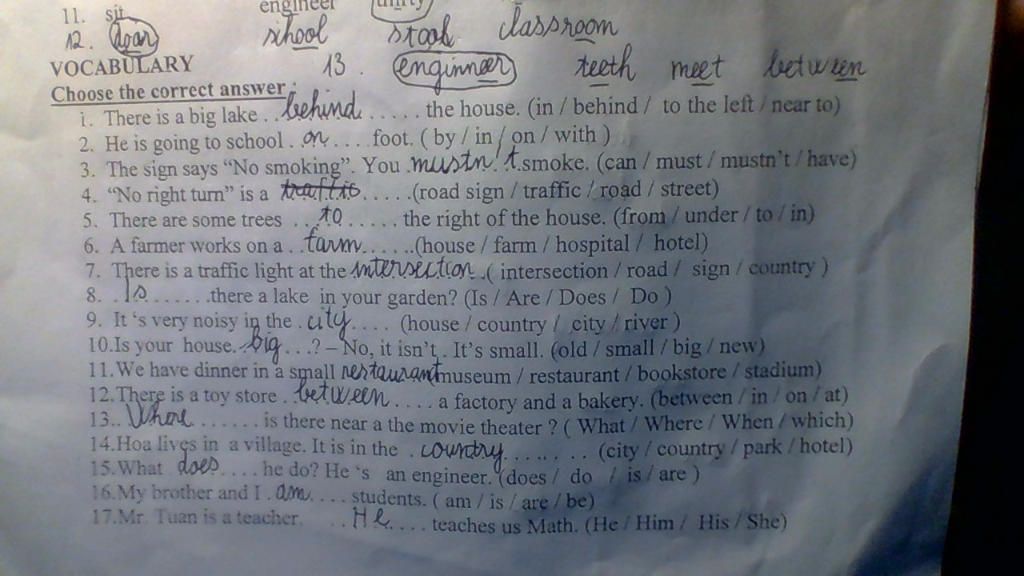 11. sit engineer unity
12. door school stool classroom
VOCABULARY 13. enginneer teeth meet between
Choose the correct answer:
1. There is a big lake ..behind...... the house. (in / behind / to the left / near to)
2. He is going to school . on .... foot. ( by / in / on / with )
3. The sign says “No smoking”. You mustn't.smoke. (can / must / mustn’t / have)
4. “No right turn” is a traffic .....(road sign / traffic / road / street)
5. There are some trees ...to..... the right of the house. (from / under / to / in)
6. A farmer works on a ..farm......(house / farm / hospital / hotel)
7. There is a traffic light at the intersection .( intersection / road / sign / country )
8. .Is.......there a lake in your garden? (Is / Are / Does / Do )
9. It ‘s very noisy in the .city.... (house / country / city / river )
10.Is your house..big...? – No, it isn’t . It’s small. (old / small / big / new)
11.We have dinner in a small restaurant museum / restaurant / bookstore / stadium)
12.There is a toy store ..between.... a factory and a bakery. (between / in / on / at)
13.. Where ...... is there near a the movie theater ? ( What / Where / When / which)
14.Hoa lives in a village. It is in the . country....... (city / country / park / hotel)
15.What does.... he do? He ‘s an engineer. (does / do / is / are )
16.My brother and I .am.... students. ( am / is / are / be)
17.Mr. Tuan is a teacher. ..He.... teaches us Math. (He / Him / His / She)